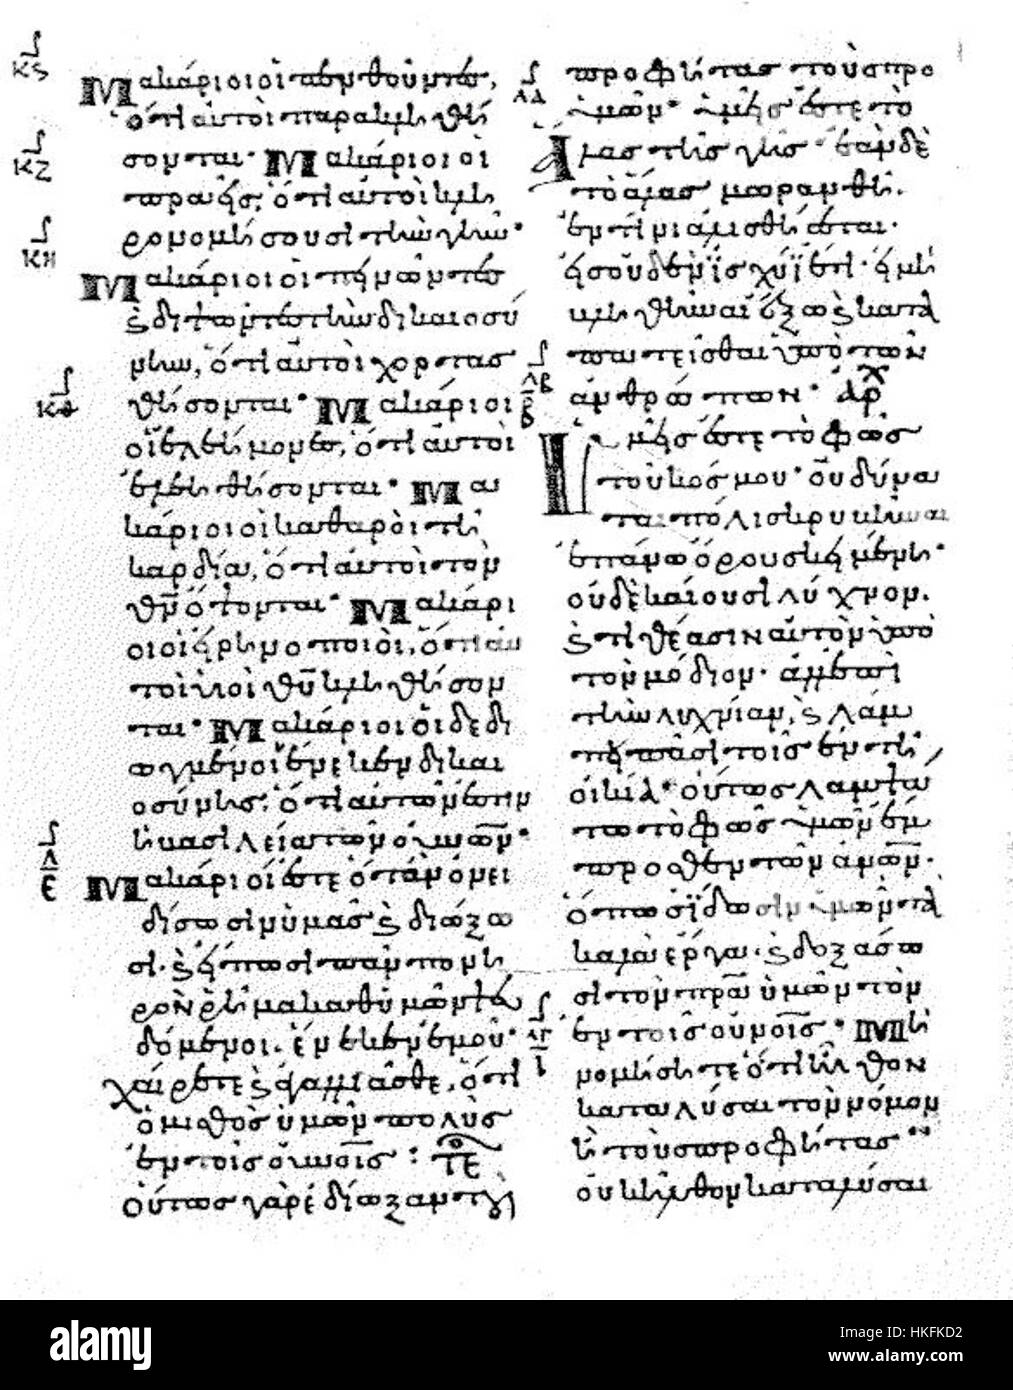 Μακάριοι οἱ πενθοῦντες,
ὅτι αὐτοὶ παρακληθή
σονται· Μακάριοι οἱ
πραεῖς, ὅτι αὐτοὶ κλη
ρονομήσουσι τὴν γῆν·
Μακάριοι οἱ πεινῶντες
ϗ διψῶντες τὴν δικαιοσύ
νην, ὅτι αὐτοὶ χορτασ
θήσονται· Μακάριοι
οἱ ἐλεήμονες, ὅτι αὐτοὶ
ἐλεηθήσονται· Μα
κάριοι οἱ καθαροὶ τῇ
καρδίᾳ, ὅτι αὐτοὶ τὸν
θν̅ ὄψονται· Μακάρι
οι οἱ εἰρηνοποιοὶ, ὅτι αυ
τοὶ υἱοὶ θυ̅ κληθήσον
ται· Μακάριοι οἱ δεδι
ωγμένοι ἕνεκεν δικαι
οσύνης, ὅτι αὐτῶν ἐστιν
ἡ βασιλεία τῶν οὐνῶν·
Μακάριοί ἐστε ὅταν ὀνει
δίσωσιν ὑμᾶς ϗ διώξω
σι· ϗ εἴπωσι πᾶν πονη
ρὸν ῥῆμα καθ' ὑμῶν ψευ
δόμενοι· ἕνεκεν ἐμοῦ·
χαίρετε ϗ ἀγαλλιᾶσθε, ὅτι
ὁ μισθὸς ὑμῶν πολὺς
ἐν τοῖς οὐνοῖς : ΤΕ
οὕτως γὰρ ἐδίωξαν τοὺς
προφήτας τοὺς πρὸ
ὑμῶν· ὑμεῖς ἐστε τὸ
ἅλας τῆς γῆς· ἐὰν δὲ
τὸ ἅλας μωρανθῇ·
ἐν τίνι ἁλισθήσεται·
εἰς οὐδὲν ἰσχύει ἔτι· εἰ μὴ
βληθῆναι ἔξω ϗ κατα
πατεῖσθαι ὑπὸ τῶν
ἀνθρώπων· ἀρχ
Ὑμεῖς ἐστε τὸ φῶς
τοῦ κόσμου· οὐ δύνα
ται πόλις κρυβῆναι
ἐπάνω ὄρους κειμένη·
οὐδὲ καίουσι λύχνον·
ϗ τιθέασιν αὐτὸν ὑπὸ
τὸν μόδιον· ἀλλ' ἐπὶ
τὴν λυχνίαν, ϗ λάμ
πει πᾶσι τοῖς ἐν τῇ
οἰκίᾳ· οὕτως λαμψά
τω τὸ φῶς ὑμῶν ἔμ
προσθεν τῶν ἀνων·
ὅπως ἴδωσιν ὑμῶν τὰ
καλὰ ἔργα· ϗ δοξάσω
σι τὸν πρα ὑμῶν τὸν
ἐν τοῖς οὐνοῖς· Μὴ
νομίσητε ὅτι ἦλθον
καταλῦσαι τὸν νόμον
ἢ τοὺς προφήτας·
οὐκ ἦλθον καταλῦσαι
κϛ
κζ
κη
κθ
alamy stock photo
HKFKD2
www.alamy.com